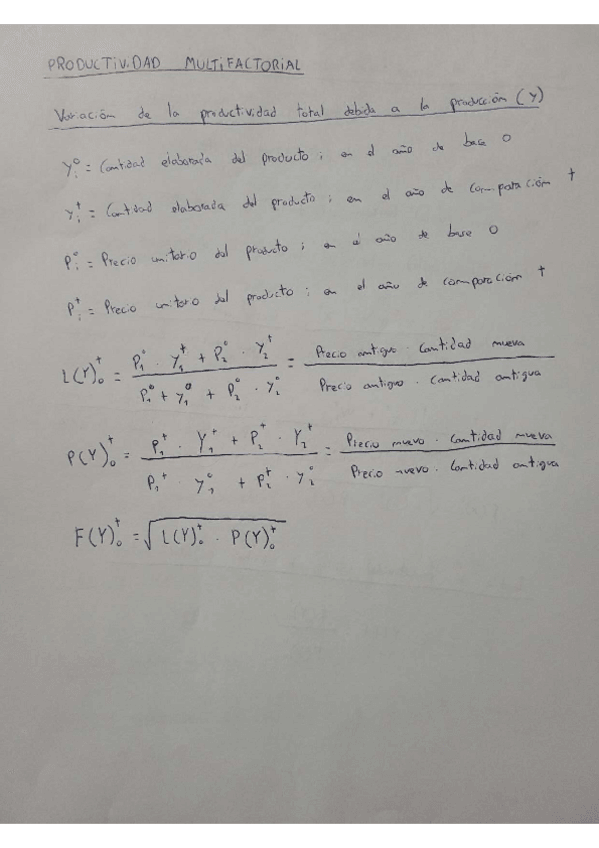 PRODUCTIVIDAD MULTIFACTORIAL
Variación de la productividad total debida a la producción (Y)
Y_i^0 = Cantidad elaborada del producto i en el año de base 0
Y_i^t = Cantidad elaborada del producto i en el año de comparación t
P_i^0 = Precio unitario del producto i en el año de base 0
P_i^t = Precio unitario del producto i en el año de comparación t
L(Y)_0^t = (P_1^0 · Y_1^t + P_2^0 · Y_2^t) / (P_1^0 + Y_1^0 + P_2^0 · Y_2^0) = Precio antiguo · Cantidad nueva / Precio antiguo · Cantidad antigua
P(Y)_0^t = (P_1^t · Y_1^t + P_2^t · Y_2^t) / (P_1^t · Y_1^0 + P_2^t · Y_2^0) = Precio nuevo · Cantidad nueva / Precio nuevo · Cantidad antigua
F(Y)_0^t = √(L(Y)_0^t · P(Y)_0^t)